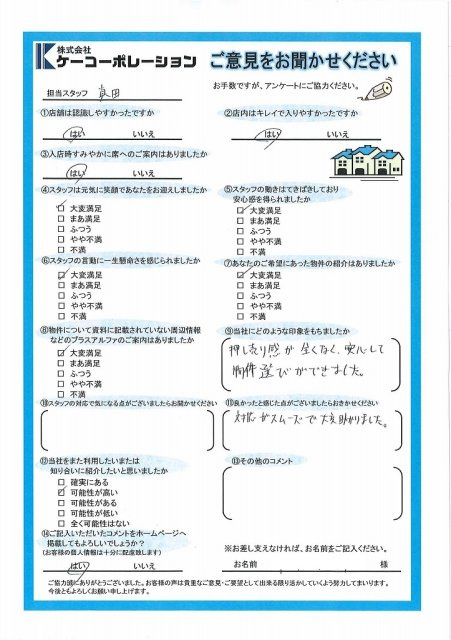 株式会社
ケーコーポレーション
ご意見をお聞かせください
お手数ですが、アンケートにご協力ください。
担当スタッフ 真田
①店舗は認識しやすかったですか
はい いいえ
②店内はキレイで入りやすかったですか
はい いいえ
③入店時すみやかに席へのご案内はありましたか
はい いいえ
④スタッフは元気に笑顔であなたをお迎えしましたか
大変満足
まあ満足
ふつう
やや不満
不満
⑤スタッフの動きはてきぱきしており
安心感を得られましたか
大変満足
まあ満足
ふつう
やや不満
不満
⑥スタッフの言動に一生懸命さを感じられましたか
大変満足
まあ満足
ふつう
やや不満
不満
⑦あなたのご希望にあった物件の紹介はありましたか
大変満足
まあ満足
ふつう
やや不満
不満
⑧物件について資料に記載されていない周辺情報
などのプラスアルファのご案内はありましたか
大変満足
まあ満足
ふつう
やや不満
不満
⑨当社にどのような印象をもちましたか
押し売り感が全くなく、安心して
物件選びができました。
⑩スタッフの対応で気になる点がございましたらお聞かせください
⑪良かったと感じた点がございましたらおきかせください
対応がスムーズで大変助かりました。
⑫当社をまた利用したいまたは
知り合いに紹介したいと思いましたか
確実にある
可能性が高い
可能性がある
可能性が低い
全く可能性はない
⑬その他のコメント
⑭ご記入いただいたコメントをホームページへ
掲載してもよろしいでしょうか?
(お客様の個人情報は十分に配慮致します)
はい いいえ
※お差し支えなければ、お名前をご記入ください。
お名前 様
ご協力誠にありがとうございました。お客様の声は貴重なご意見・ご要望として出来る限り活かしていくよう努力してまいります。
今後ともよろしくお願い申し上げます。